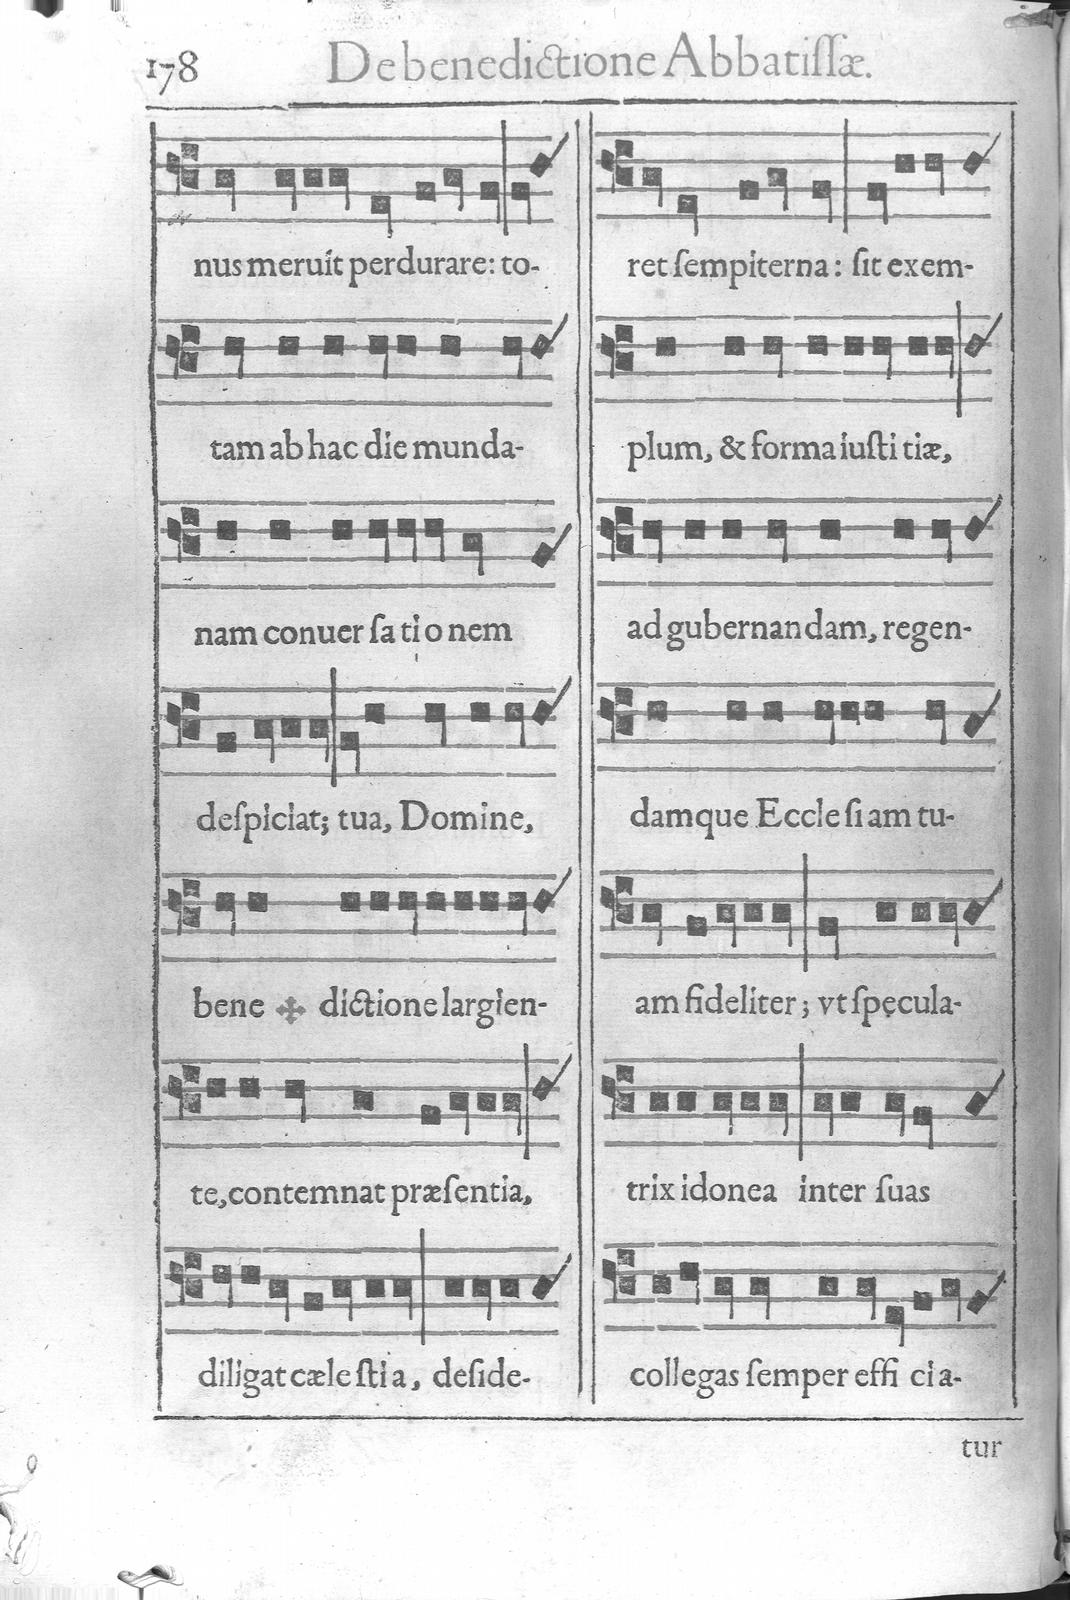 178
De benedictione Abbatiſſæ.
nus meruit perdurare: to-
tam ab hac die munda-
nam conuer ſa ti o nem
deſpiciat; tua, Domine,
bene ✠ dictione largien-
te, contemnat præſentia,
diligat cæle ſti a, deſide-
ret ſempiterna: ſit exem-
plum, & forma iuſti tiæ,
ad gubernandam, regen-
damque Eccle ſi am tu-
am fideliter; vt ſpęcula-
trix idonea inter ſuas
collegas ſemper effi ci a-
tur